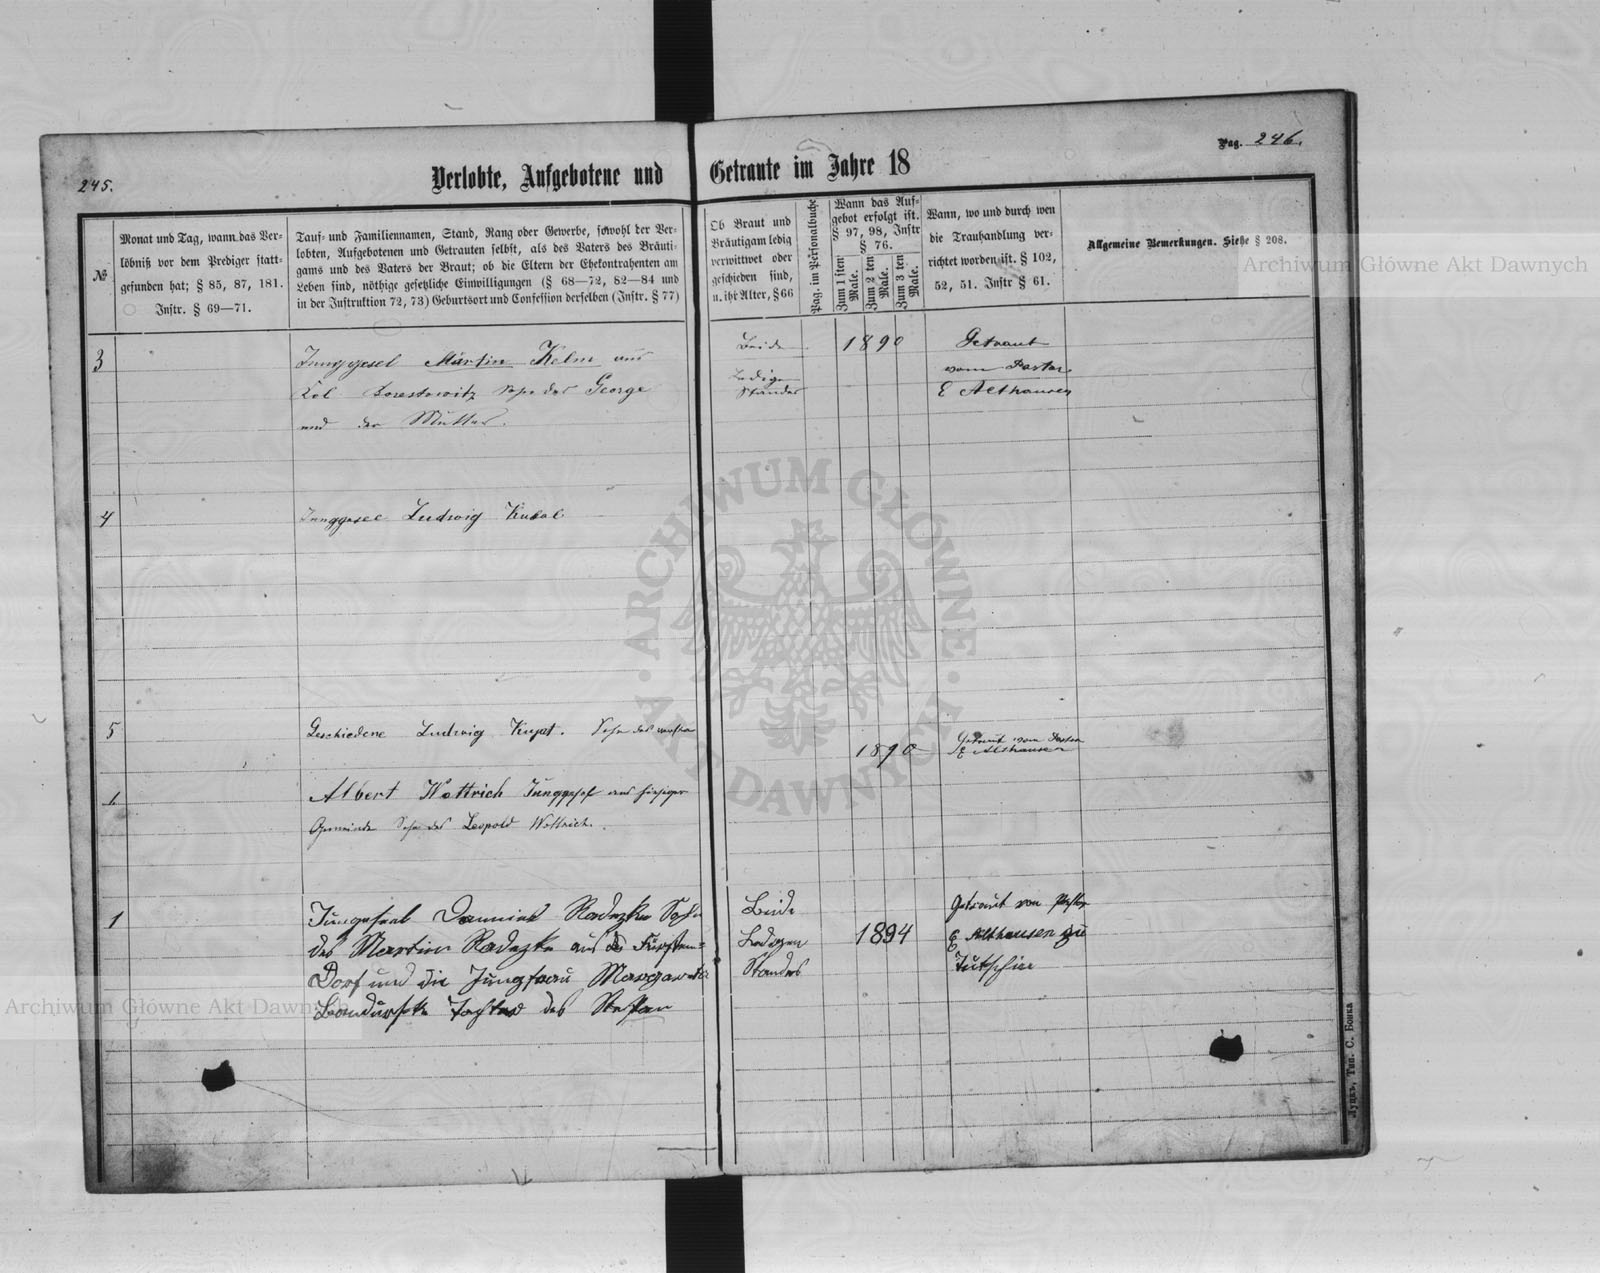 245.
Verlobte, Aufgebotene und Getraute im Jahre 18
Pag. 246.
№
Monat und Tag, wann das Ver-
löbniß vor dem Prediger statt-
gefunden hat; § 85, 87, 181.
Instr. § 69—71.
Tauf- und Familiennamen, Stand, Rang oder Gewerbe, sowohl der Ver-
lobten, Aufgebotenen und Getrauten selbst, als des Vaters des Bräuti-
gams und des Vaters der Braut; ob die Eltern der Ehekontrahenten am
Leben sind, nöthige gesetzliche Einwilligungen (§ 68—72, 82—84 und
in der Instruktion 72, 73) Geburtsort und Confession derselben (Instr. § 77)
Ob Braut und
Bräutigam ledig
verwittwet oder
geschieden sind,
u. ihr Alter, § 66
Pag. im Personalbuche
Wann das Auf-
gebot erfolgt ist.
§ 97, 98, Instr
§ 76.
Zum 1 sten
Male.
Zum 2 ten
Male.
Zum 3 ten
Male.
Wann, wo und durch wen
die Trauhandlung ver-
richtet worden ist. § 102,
52, 51. Instr § 61.
Allgemeine Bemerkungen. Siehe § 208.
3
Junggesel Martin Kelm aus
Kol Sohn des George
und der Mutter.
Beide
Ledigen
Standes
1890
Getraut
vom Pastor
E Althausen
4
Junggesel Ludwig
5
Geschiedene Ludwig Sohn des
1890
Getraut vom Pastor
E Althausen
Albert Wottrich Junggesel aus hiesiger
Gemeinde Sohn des Leopold Wottrich.
1
Junggesel Radezke Sohn
des Martin Radezke aus
Dorf und die Jungfrau
Tochter des Stephan
Beide
Ledigen
Standes
1894
Getraut von Pastor
E Althausen zu
Луцкъ, Тип. С. Бонка
Archiwum Główne Akt Dawnych
Archiwum Główne Akt Dawnych
ARCHIWUM GŁÓWNE · AKT DAWNYCH ·